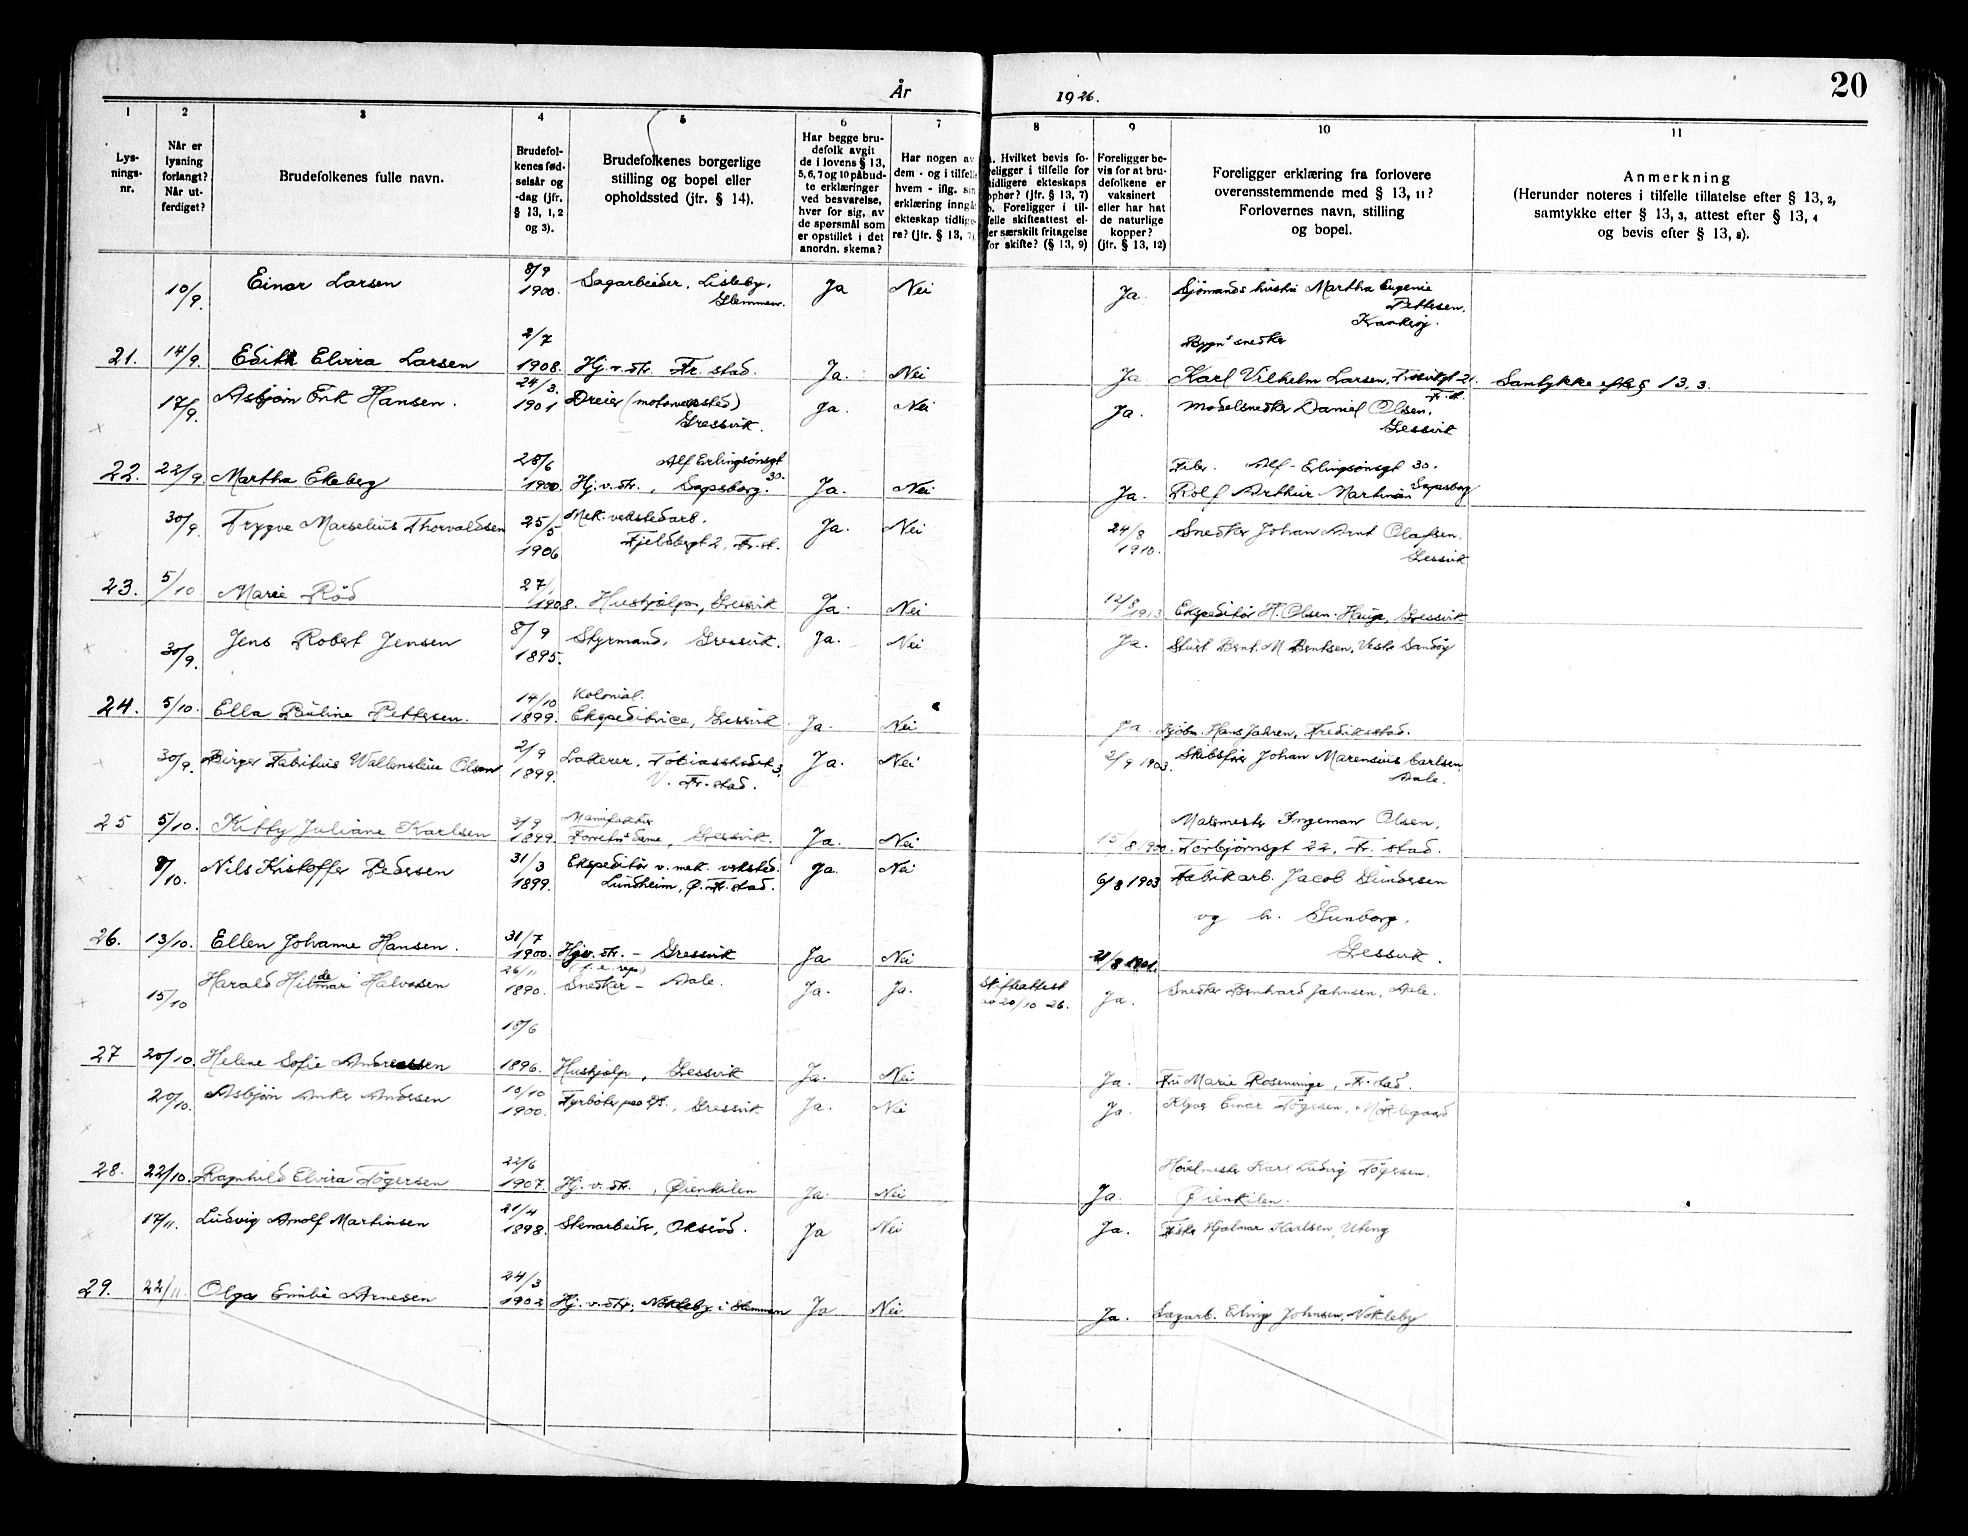 År 1926. 20
1 2 3 4 5 6 7 8 9 10 11
Lys-
nings-
nr.
Når er
lysning
forlangt?
Når ut-
ferdiget?
Brudefolkenes fulle navn.
Brudefol-
kenes fød-
selsår og
-dag (jfr.
§ 13, 1, 2
og 3).
Brudefolkenes borgerlige
stilling og bopel eller
opholdssted (jfr. § 14).
Har begge bru-
defolk avgit
de i lovens § 13,
5, 6, 7 og 10 påbud-
te erklæringer
ved besvarelse,
hver for sig, av
de spørsmål som
er opstillet i det
anordn. skema?
Har nogen av
dem - og i tilfelle
hvem - iflg. sin
erklæring inngå
ekteskap tidlige-
re? (jfr. § 13, 7)
Hvilket bevis fo-
religger i tilfelle for
tidligere ekteskaps
ophør? (jfr. § 13, 7)
b. Foreligger i til-
felle skifteattest el-
ler særskilt fritagelse
for skifte? (§ 13, 9)
Foreligger be-
vis for at bru-
defolkene er
vaksinert
eller har hat
de naturlige
kopper?
(jfr. § 13, 12)
Foreligger erklæring fra forlovere
overensstemmende med § 13, 11?
Forlovernes navn, stilling
og bopel.
Anmerkning
(Herunder noteres i tilfelle tillatelse efter § 13, 2,
samtykke efter § 13, 3, attest efter § 13, 4
og bevis efter § 13, 8).
10/9. Einar Larsen 8/9 1900. Sagarbeider, Lisleby, Glemmen. Ja Nei Ja. Sjömands hustru Martha Eugenie Pettersen, Kraakeröy.
21. 14/9. Edith Elvira Larsen 2/7 1908. Hj. v. str. Fr. stad. Ja. Nei Ja Bygn.s snedker Karl Vilhelm Larsen, Fr.st. Samtykke efter § 13, 3.
17/9. Asbjörn Erik Hansen. 24/3. 1901 Dreier (motorverksted) Gressvik. Ja. Nei Ja. Modelsnedker Daniel Olsen, Gressvik
22. 22/9. Martha Ekeberg 28/6 1900. Hj. v. str., Alf Erlingsönsgt 30. Sapsborg. Ja. Nei Ja. Filer. Alf-Erlingsönsgt 30. Rolf Arthur Martinsen Sapsborg
30/9. Trygve Marselius Thorvaldsen 25/5 1906 Mek. verkstedarb. Fjeldbergt 2, Fr. st. Ja. Nei 24/8 1910. Snedker Johan Arnt Olafsen, Gressvik
23. 5/10 Marie Röd 27/1 1908. Hushjælp, Gressvik Ja. Nei 12/8 1913 Ekspeditör H. Olsen-Hauge, Gressvik
30/9. Jens Robert Jensen 8/9 1895. Styrmand, Gressvik. Ja. Nei Ja. Stuert Bernt. M Berntsen, Vestre Sandöy
24. 5/10. Ella Pauline Pettersen. 14/10 1899. Kolonial. Ekspeditrice, Gressvik Ja. Nei Ja. Hans Jahren, Fredriksstad.
30/9. Birger Fabritius Wallenstein Olsen 2/9 1899. Lakerer, Tobiasstredet 3, V. Fr. stad. Ja. Nei 2/9 1903. Skibsförer Johan Marensius Carlsen, Aale.
25 5/10. Kitty Juliane Karlsen 3/9 1899. Manufaktur Forretn.s dame, Gressvik. Ja. Nei 15/8 1900. Malermester Ingeman Olsen, Torbjörnsgt 22, Fr. stad.
8/10. Nils Kristoffer Pedersen 31/3 1899. Ekspeditör v. mek. verksted. Lundheim, Ø. Fr. stad. Ja. Nei 6/8 1903 Fabrikarb. Jacob Gundersen
og h. Gunborg,
Gressvik.
26. 13/10. Ellen Johanne Hansen. 31/7 1900. Hj. v. str. – Gressvik Ja Nei 21/8 1901.
15/10 Harald Hilmar Halvorsen 26/11 1890. Snedker – Aale. Ja. Ja. Skifteattest av 20/10 26. Ja. Snedker Bernhard Jahnsen, Aale.
27 20/10. Helene Sofie Andreassen 18/6 1896. Hushjælp, Gressvik Ja. Nei Ja. Fru Marie Rosenvinge, Fr. stad.
20/10. Asbjörn Anker Andersen 10/10 1900. Fyrböter paa, Gressvik Ja. Nei Ja. Einar Tögersen, Möklegaard
28. 22/10. Ragnhild Elvira Tögersen 22/6 1907. Hj. v. str., Øienkilen Ja. Nei Ja. Hövelmester Karl Ludvig Tögersen, Øienkilen.
17/11. Ludvig Arnolf Martinsen 21/4 1898. Stenarbeider, Oksröd. Ja Nei Ja. Fisker Hjalmar Karlsen, Uteng
29. 22/11 Olga Emilie Arnesen 24/3 1902 Hj. v. str., Nökleby i Glemmen Ja Nei. Ja. Sagarb. Erling Johnsen, Nökleby